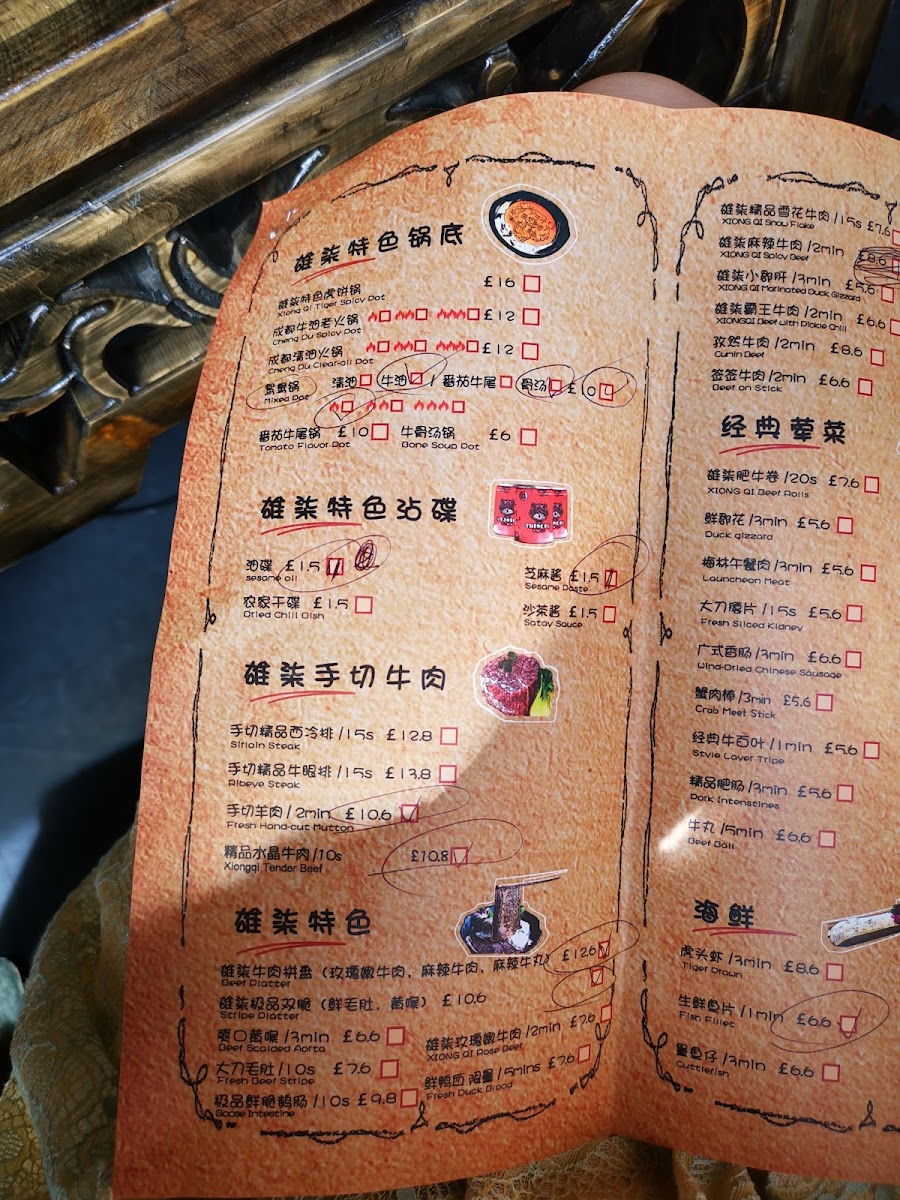 雄柒特色锅底
雄柒特色虎饼锅 £16
Xiong Qi Tiger Spicy Pot
成都牛油老火锅 £12
Cheng Du Spicy Pot
成都清油火锅 £12
Cheng Du Clear-oil Pot
鸳鸯锅 清油 牛油 / 番茄牛尾 骨汤
Mixed Pot
番茄牛尾锅 £10 牛骨汤锅 £6
Tomato Flavor Pot Bone Soup Pot
雄柒特色沾碟
油碟 £1.5 芝麻酱 £1.5
sesame oil Sesame Paste
农家干碟 £1.5 沙茶酱 £1.5
Dried Chili Dish Satay Sauce
雄柒手切牛肉
手切精品西冷排 /15s £12.8
Sirloin Steak
手切精品牛眼排 /15s £13.8
Ribeye Steak
手切羊肉 / 2min £10.6
Fresh Hand-cut Mutton
精品水晶牛肉 /10s £10.8
Xiongqi Tender Beef
雄柒特色
雄柒牛肉拼盘（玫瑰嫩牛肉，麻辣牛肉，麻辣牛丸） £12.6
Beef Platter
雄柒极品双脆（鲜毛肚，黄喉） £10.6
Stripe Platter
爽口黄喉 /3min £6.6 雄柒玫瑰嫩牛肉 /2min £7.6
Beef Scalded Aorta XIONG QI Rose Beef
大刀毛肚 /10s £7.6 鲜鸭血 限量 /5mins £7.6
Fresh Beef Stripe Fresh Duck Blood
极品鲜脆鹅肠 /10s £9.8
Goose Intestine
雄柒精品雪花牛肉 /15s £7.6
XIONG QI Snow Flake
雄柒麻辣牛肉 /2min £8.6
XIONG QI Spicy Beef
雄柒小郡肝 /3min £5.6
XIONG QI Marinated Duck Gizzard
雄柒霸王牛肉 /2min £6.6
XIONGQI Beef with Pickle Chili
孜然牛肉 /2min £8.6
Cumin Beef
签签牛肉 /2min £6.6
Beef on Stick
经典荤菜
雄柒肥牛卷 /20s £7.6
XIONG QI Beef Rolls
鲜郡花 /3min £5.6
Duck gizzard
梅林午餐肉 /3min £5.6
Launcheon Meat
大刀腰片 /15s £5.6
Fresh Sliced Kidney
广式香肠 /3min £6.6
Wind-Dried Chinese Sausage
蟹肉棒 /3min £5.6
Crab Meet Stick
经典牛百叶 /1min £5.6
Style Layer Tripe
精品肥肠 /3min £5.6
Pork Intenstines
牛丸 /5min £6.6
Beef Ball
海鲜
虎头虾 /3min £8.6
Tiger Prawn
生鲜鱼片 /1min £6.6
Fish Fillet
墨鱼仔 /3min £6.6
Cuttlefish